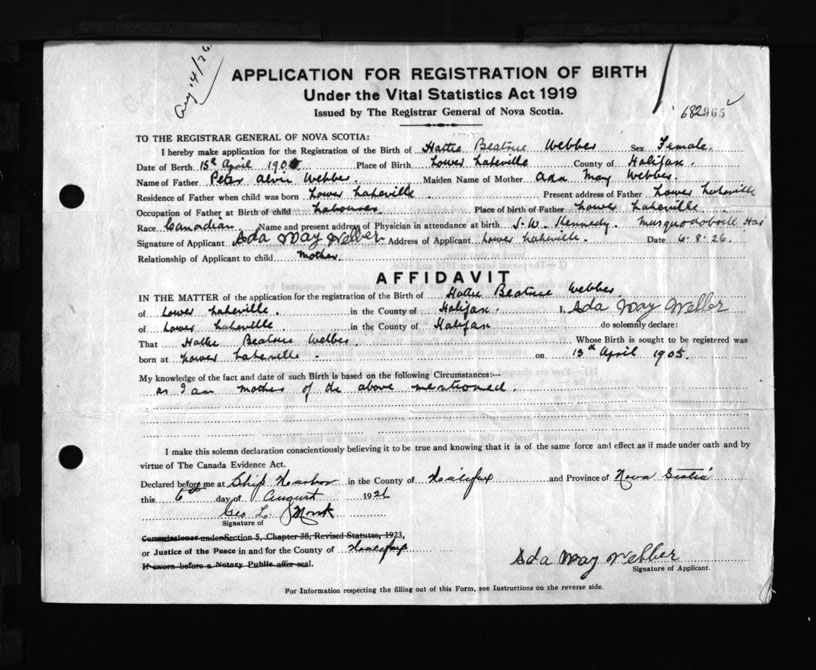 Aug 14/26
APPLICATION FOR REGISTRATION OF BIRTH
Under the Vital Statistics Act 1919
Issued by The Registrar General of Nova Scotia.
682965
TO THE REGISTRAR GENERAL OF NOVA SCOTIA:
I hereby make application for the Registration of the Birth of Hattie Beatrice Webber Sex Female.
Date of Birth 15th April 1905 Place of Birth Lower Lakeville County of Halifax.
Name of Father Peter Alvin Webber. Maiden Name of Mother Ada May Webber.
Residence of Father when child was born Lower Lakeville. Present address of Father Lower Lakeville
Occupation of Father at Birth of child Labourer. Place of birth of Father Lower Lakeville.
Race Canadian. Name and present address of Physician in attendance at birth J. W. Kennedy. Musquodoboit Har
Signature of Applicant Ada May Webber Address of Applicant Lower Lakeville. Date 6.8.26.
Relationship of Applicant to child Mother.
AFFIDAVIT
IN THE MATTER of the application for the registration of the Birth of Hattie Beatrice Webber
of Lower Lakeville. in the County of Halifax. I, Ada May Webber
of Lower Lakeville in the County of Halifax do solemnly declare:
That Hattie Beatrice Webber. Whose Birth is sought to be registered was
born at Lower Lakeville. on 15th April 1905.
My knowledge of the fact and date of such Birth is based on the following Circumstances:—
as I am mother of the above mentioned.
I make this solemn declaration conscientiously believing it to be true and knowing that it is of the same force and effect as if made under oath and by
virtue of The Canada Evidence Act.
Declared before me at Ship Harbor in the County of Halifax and Province of Nova Scotia
this 6th day of August 1926
Geo L. Monk
Signature of
Commissioner under Section 5, Chapter 38, Revised Statutes, 1923,
or Justice of the Peace in and for the County of Halifax
If sworn before a Notary Public affix seal.
Ada May Webber
Signature of Applicant.
For Information respecting the filling out of this Form, see Instructions on the reverse side.